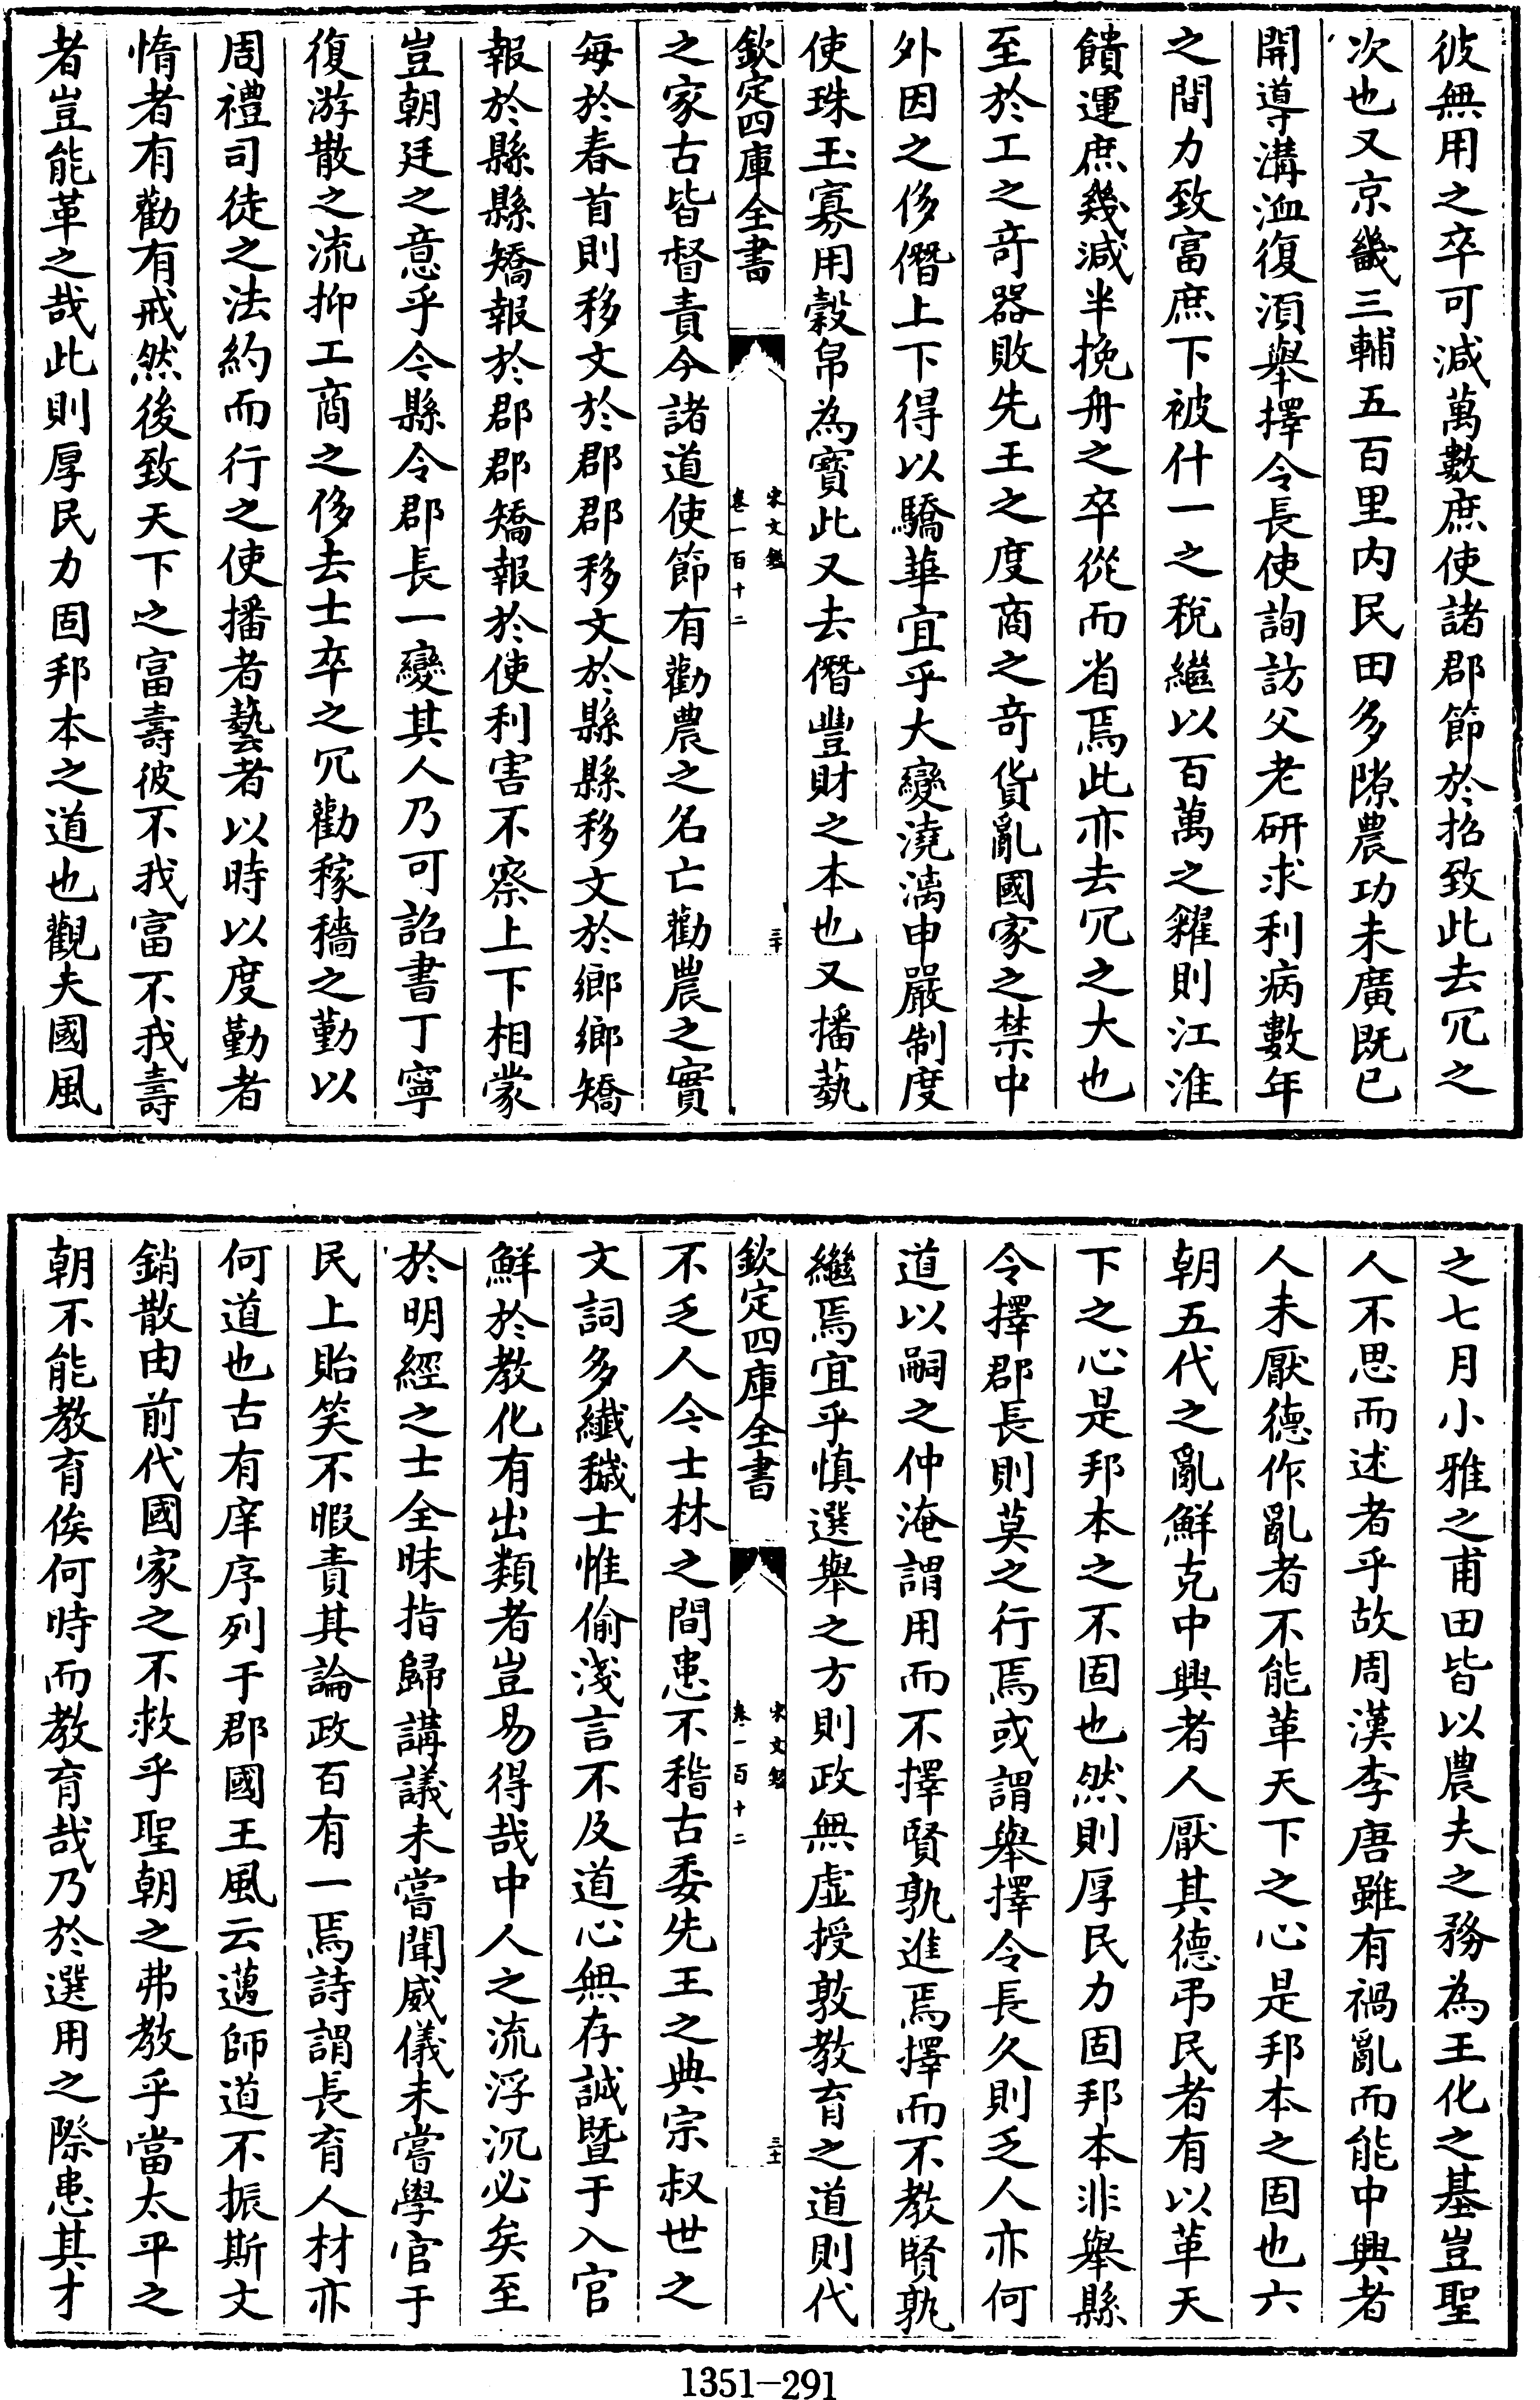 彼無用之卒可減萬數庶使諸郡節於招致此去冗之
次也又京畿三輔五百里内民田多隙農功未廣既已
開導溝洫復須舉擇令長使詢訪父老研求利病數年
之間力致富庶下被什一之稅繼以百萬之糴則江淮
饋運庶幾減半挽舟之卒從而省焉此亦去冗之大也
至於工之奇器敗先王之度商之奇貨亂國家之禁中
外因之侈僭上下得以驕華宜乎大變澆漓申嚴制度
使珠玉寡用穀帛為寳此又去僭豐財之本也又播藝
欽定四庫全書
宋文鑑
卷一百十二
三十
之家古皆督責今諸道使節有勸農之名亡勸農之實
每於春首則移文於郡郡移文於縣縣移文於鄉鄉矯
報於縣縣矯報於郡郡矯報於使利害不察上下相蒙
豈朝廷之意乎令縣令郡長一變其人乃可詔書丁寧
復游散之流抑工商之侈去士卒之冗勸稼穡之勤以
周禮司徒之法約而行之使播者藝者以時以度勤者
惰者有勸有戒然後致天下之富壽彼不我富不我壽
者豈能革之哉此則厚民力固邦本之道也觀夫國風
之七月小雅之甫田皆以農夫之務為王化之基豈聖
人不思而述者乎故周漢李唐雖有禍亂而能中興者
人未厭德作亂者不能革天下之心是邦本之固也六
朝五代之亂鮮克中興者人厭其德弔民者有以革天
下之心是邦本之不固也然則厚民力固邦本非舉縣
令擇郡長則莫之行焉或謂舉擇令長久則乏人亦何
道以嗣之仲淹謂用而不擇賢孰進焉擇而不教賢孰
繼焉宜乎慎選舉之方則政無虛授敦教育之道則代
欽定四庫全書
宋文鑑
卷一百十二
三十一
不乏人今士林之間患不稽古委先王之典宗叔世之
文詞多纎穢士惟偷淺言不及道心無存誠暨于入官
鮮於教化有出類者豈易得哉中人之流浮沉必矣至
於明經之士全昧指歸講議未嘗聞威儀未嘗學官于
民上貽笑不暇責其論政百有一焉詩謂長育人材亦
何道也古有庠序列于郡國王風云邁師道不振斯文
銷散由前代國家之不救乎聖朝之弗教乎當太平之
朝不能教育俟何時而教育哉乃於選用之際患其才
1351-291